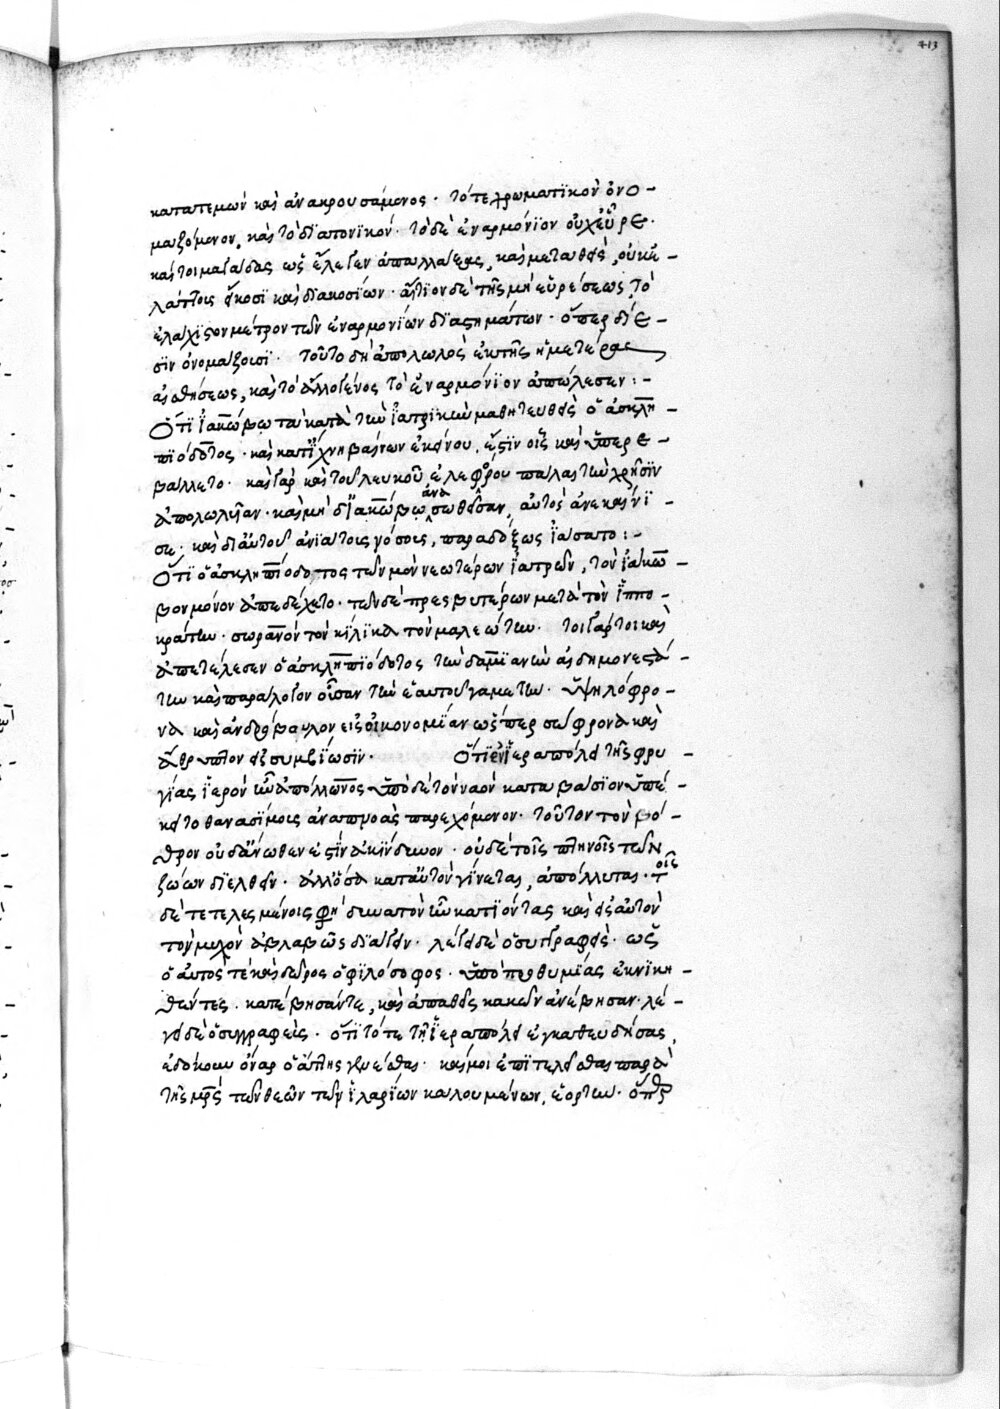 413
κατατεμὼν καὶ ἀνακρουσάμενος· τό τε χρωματικὸν ὀνο-
μαζόμενον, καὶ τὸ διατονικόν· τὸ δὲ ἐναρμόνιον οὐχ εὗρε·
καίτοι μαγάδας ὡς ἔλεγεν ὑπαλλάξας, καὶ μεταθεὶς, οὐκ ἐ-
λάττοις εἴκοσι καὶ διακοσίων· αἴτιον δὲ τῆς μὴ εὑρέσεως, τὸ
ἐλάχιστον μέτρον τῶν ἐναρμονίων διαστημάτων· ὅπερ δίε-
σιν ὀνομάζουσι· τοῦτο δὴ ἀπολωλὸς ἐκ τῆς ἡμετέρας
αἰσθήσεως, καὶ τὸ ἄλλο γένος τὸ ἐναρμόνιον ἀπώλεσεν:-
Ὅτι ἰακώβω τὰ κατὰ τὴν ἰατρικὴν μαθητευθεὶς ὁ ἀσκλη-
πιόδοτος· καὶ κατ' ἴχνη βαίνων ἐκείνου, ἔστιν οἷς καὶ ὑπερε-
βάλλετο· καὶ γὰρ καὶ τοῦ λευκοῦ ἐλεβόρου πάλαι τὴν χρῆσιν
ἀπολωλυῖαν· καὶ μὴ δὲ ἰακώβω ἀνασωθεῖσαν, αὐτὸς ἀνεκαίνι-
σε· καὶ δι' αὐτοῦ ἀνιάτοις νόσοις, παραδόξως ἰάσατο:-
Ὅτι ὁ ἀσκληπιόδοτος τῶν μὲν νεωτέρων ἰατρῶν, τὸν ἰάκω-
βον μόνον ἀπεδέχετο· τῶν δὲ πρεσβυτέρων μετὰ τὸν ἱππο-
κράτην· σωρανὸν τὸν κίλικα τὸν μαλεώτην· τοιγάρτοι καὶ
ἀπετέλεσεν ὁ ἀσκληπιόδοτος τὴν δαμιανὴν ἀειδημονεστά-
την καὶ παράλογον οὖσαν τὴν ἑαυτοῦ γαμετὴν· ὑψηλόφρο-
να καὶ ἀνδρόβουλον εἰς οἰκονομίαν ὥσπερ σώφρονα καὶ
ἄθρυπτον εἰς συμβίωσιν· Ὅτι ἐν ἱεραπόλει τῆς φρυ-
γίας ἱερὸν ἦν ἀπόλλωνος ὑπὸ δὲ τὸν ναὸν καταβάσιον ὑπέ-
κειτο θανασίμοις ἀναπνοὰς παρεχόμενον· τοῦτον τὸν βό-
θρον οὐδ' ἄνωθεν ἔστιν ἀκίνδυνον· οὐδὲ τοῖς πτηνοῖς τῶν
ζώων διελθεῖν· ἀλλ' ὅσα κατ' αὐτὸν γίνεται, ἀπόλλυται· τοῖς
δὲ τετελεσμένοις φησὶ δυνατὸν ἦν κατιόντας καὶ εἰς αὐτὸν
τὸν μυχὸν ἀβλαβῶς διάγειν· λέγει δὲ ὁ συγγραφεὺς· ὡς
ὁ αὐτός τε καὶ δῶρος ὁ φιλόσοφος· ὑπὸ προθυμίας ἐκνικη-
θέντες· κατεβησάντε, καὶ ἀπαθεῖς κακῶν ἀνέβησαν· λέ-
γει δὲ ὁ συγγραφεὺς· ὅτι τότε τῆ ἱεραπόλει ἐγκαθευδήσας,
ἐδόκουν ὄναρ ὁ ἄττης γενέσθαι· καί μοι ἐπιτελεῖσθαι παρὰ
τῆς μητρὸς τῶν θεῶν τὴν τῶν ἱλαρίων καλουμένων, ἑορτὴν· ὅπερ